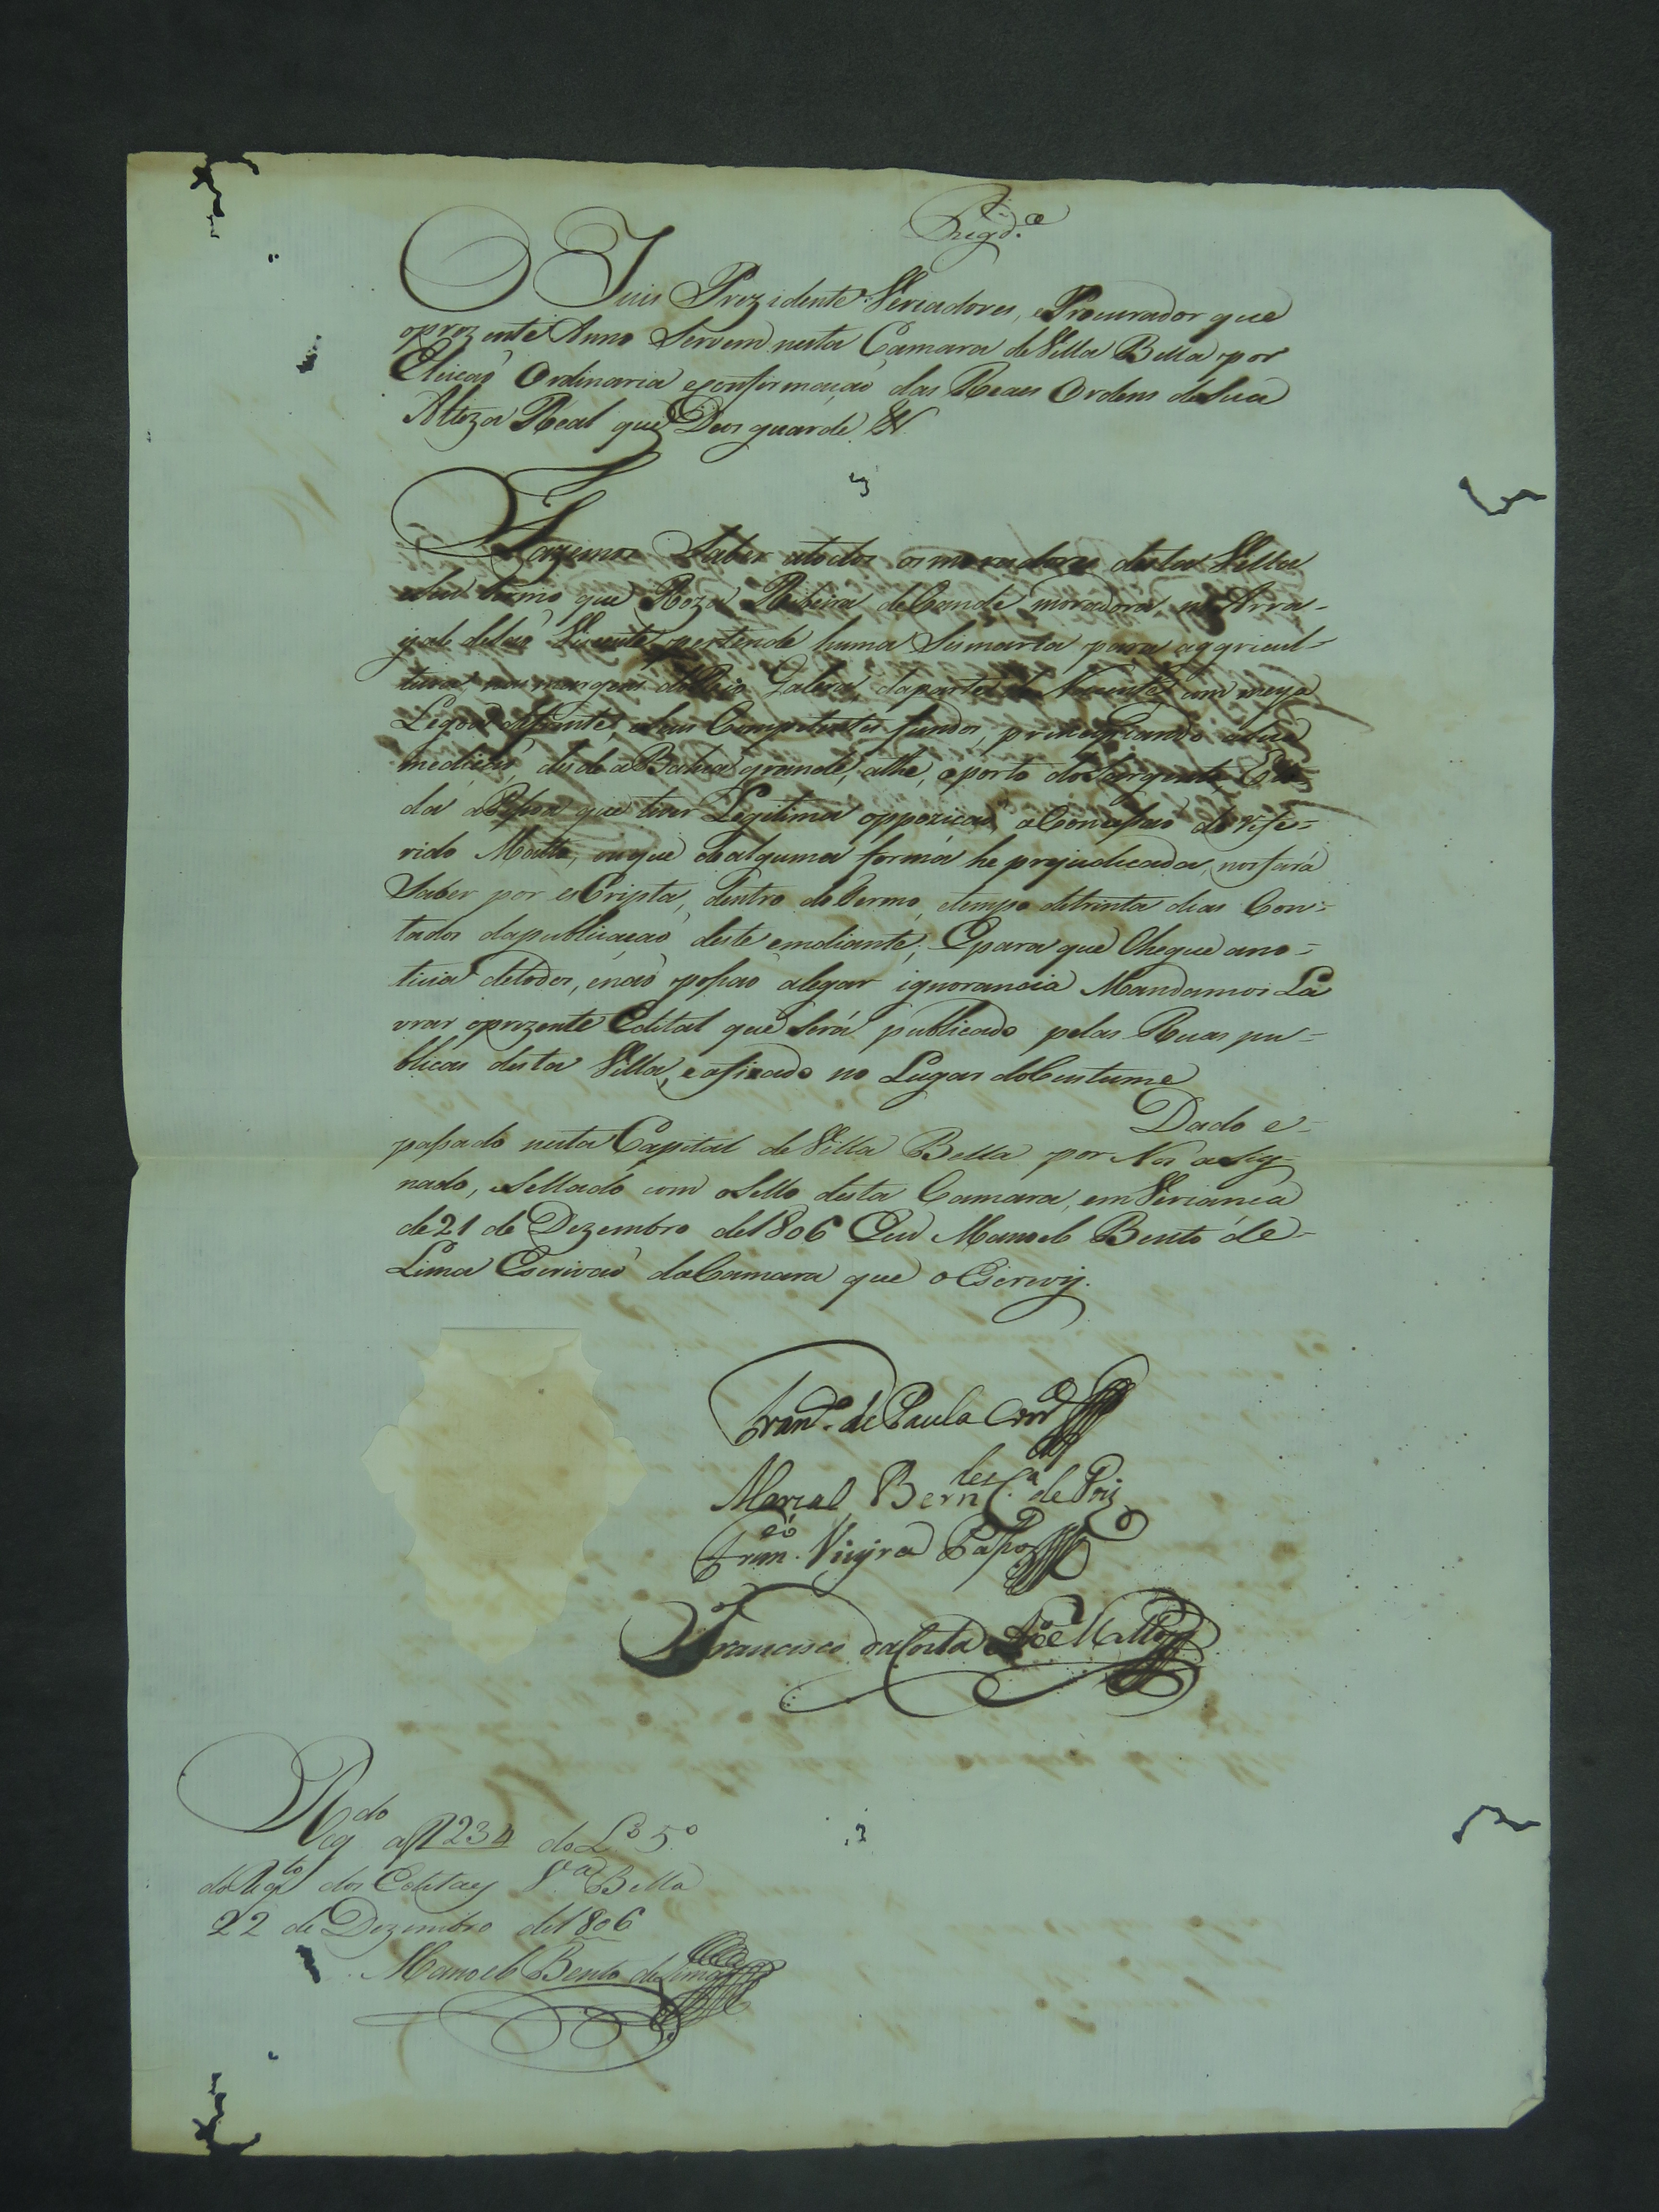 Regd.ª
O Juis Prezidente Veriadores, e Procurador que
oprezente Anno Servem nesta Camara de Villa Bella por
Eleicaõ Ordinaria e confirmaçaõ das Reaes Ordens de Sua
Alteza Real que Deos guarde &
Fazemos Saber atodos os moradores desta Villa
eSeu termo que Roza Ribeira de Cande moradora no Arra-
yal de Saõ Vicente pertende huma Sismaria para aggricul-
tura nas margens do Rio Galera, daparte do Nacente com meya
Legoa de frante, e Seus Competentes fundos, principiando aSua
mediçaõ, desde a Bahia grande, athe, o porto do Sargento, E to-
da a Pesoa que tiver Legitima oppoziçaõ, aConcessaõ do refe-
rido Matto, ou que de alguma forma he prejudicada, nos fará
Saber por esCripta, dentro do Termo, e tempo de trinta dias Con-
tados dapublicaçaõ deste emdiante; E para que Chegue ano-
ticia de todos, e naõ possaõ alegar ignorancia Mandamos La
vrar oprezente Edital que Será publicado pelas Ruas pu-
blicas desta Villa, e afixado no Lugar do Custume
Dado e-
passado nesta Capital de Villa Bella por Nós aSig-
nado, eSellado com o Sello desta Camara, em Veriança
de 21 de Dezembro de 1806 Eu Manoel Bento de-
Lima Escrivaõ da Camara que o Escrevy.
Fran.co de Paula Corr.ª
Marcal Bern.des C.ª de
Fran.co Vieyra Passos
Francisco da Costa
Reg.do af 234 do L.º 5º
do Reg.to dos Editaes V.ª Bella
22 de Dezembro de 1806
Manoel Bento de Lima